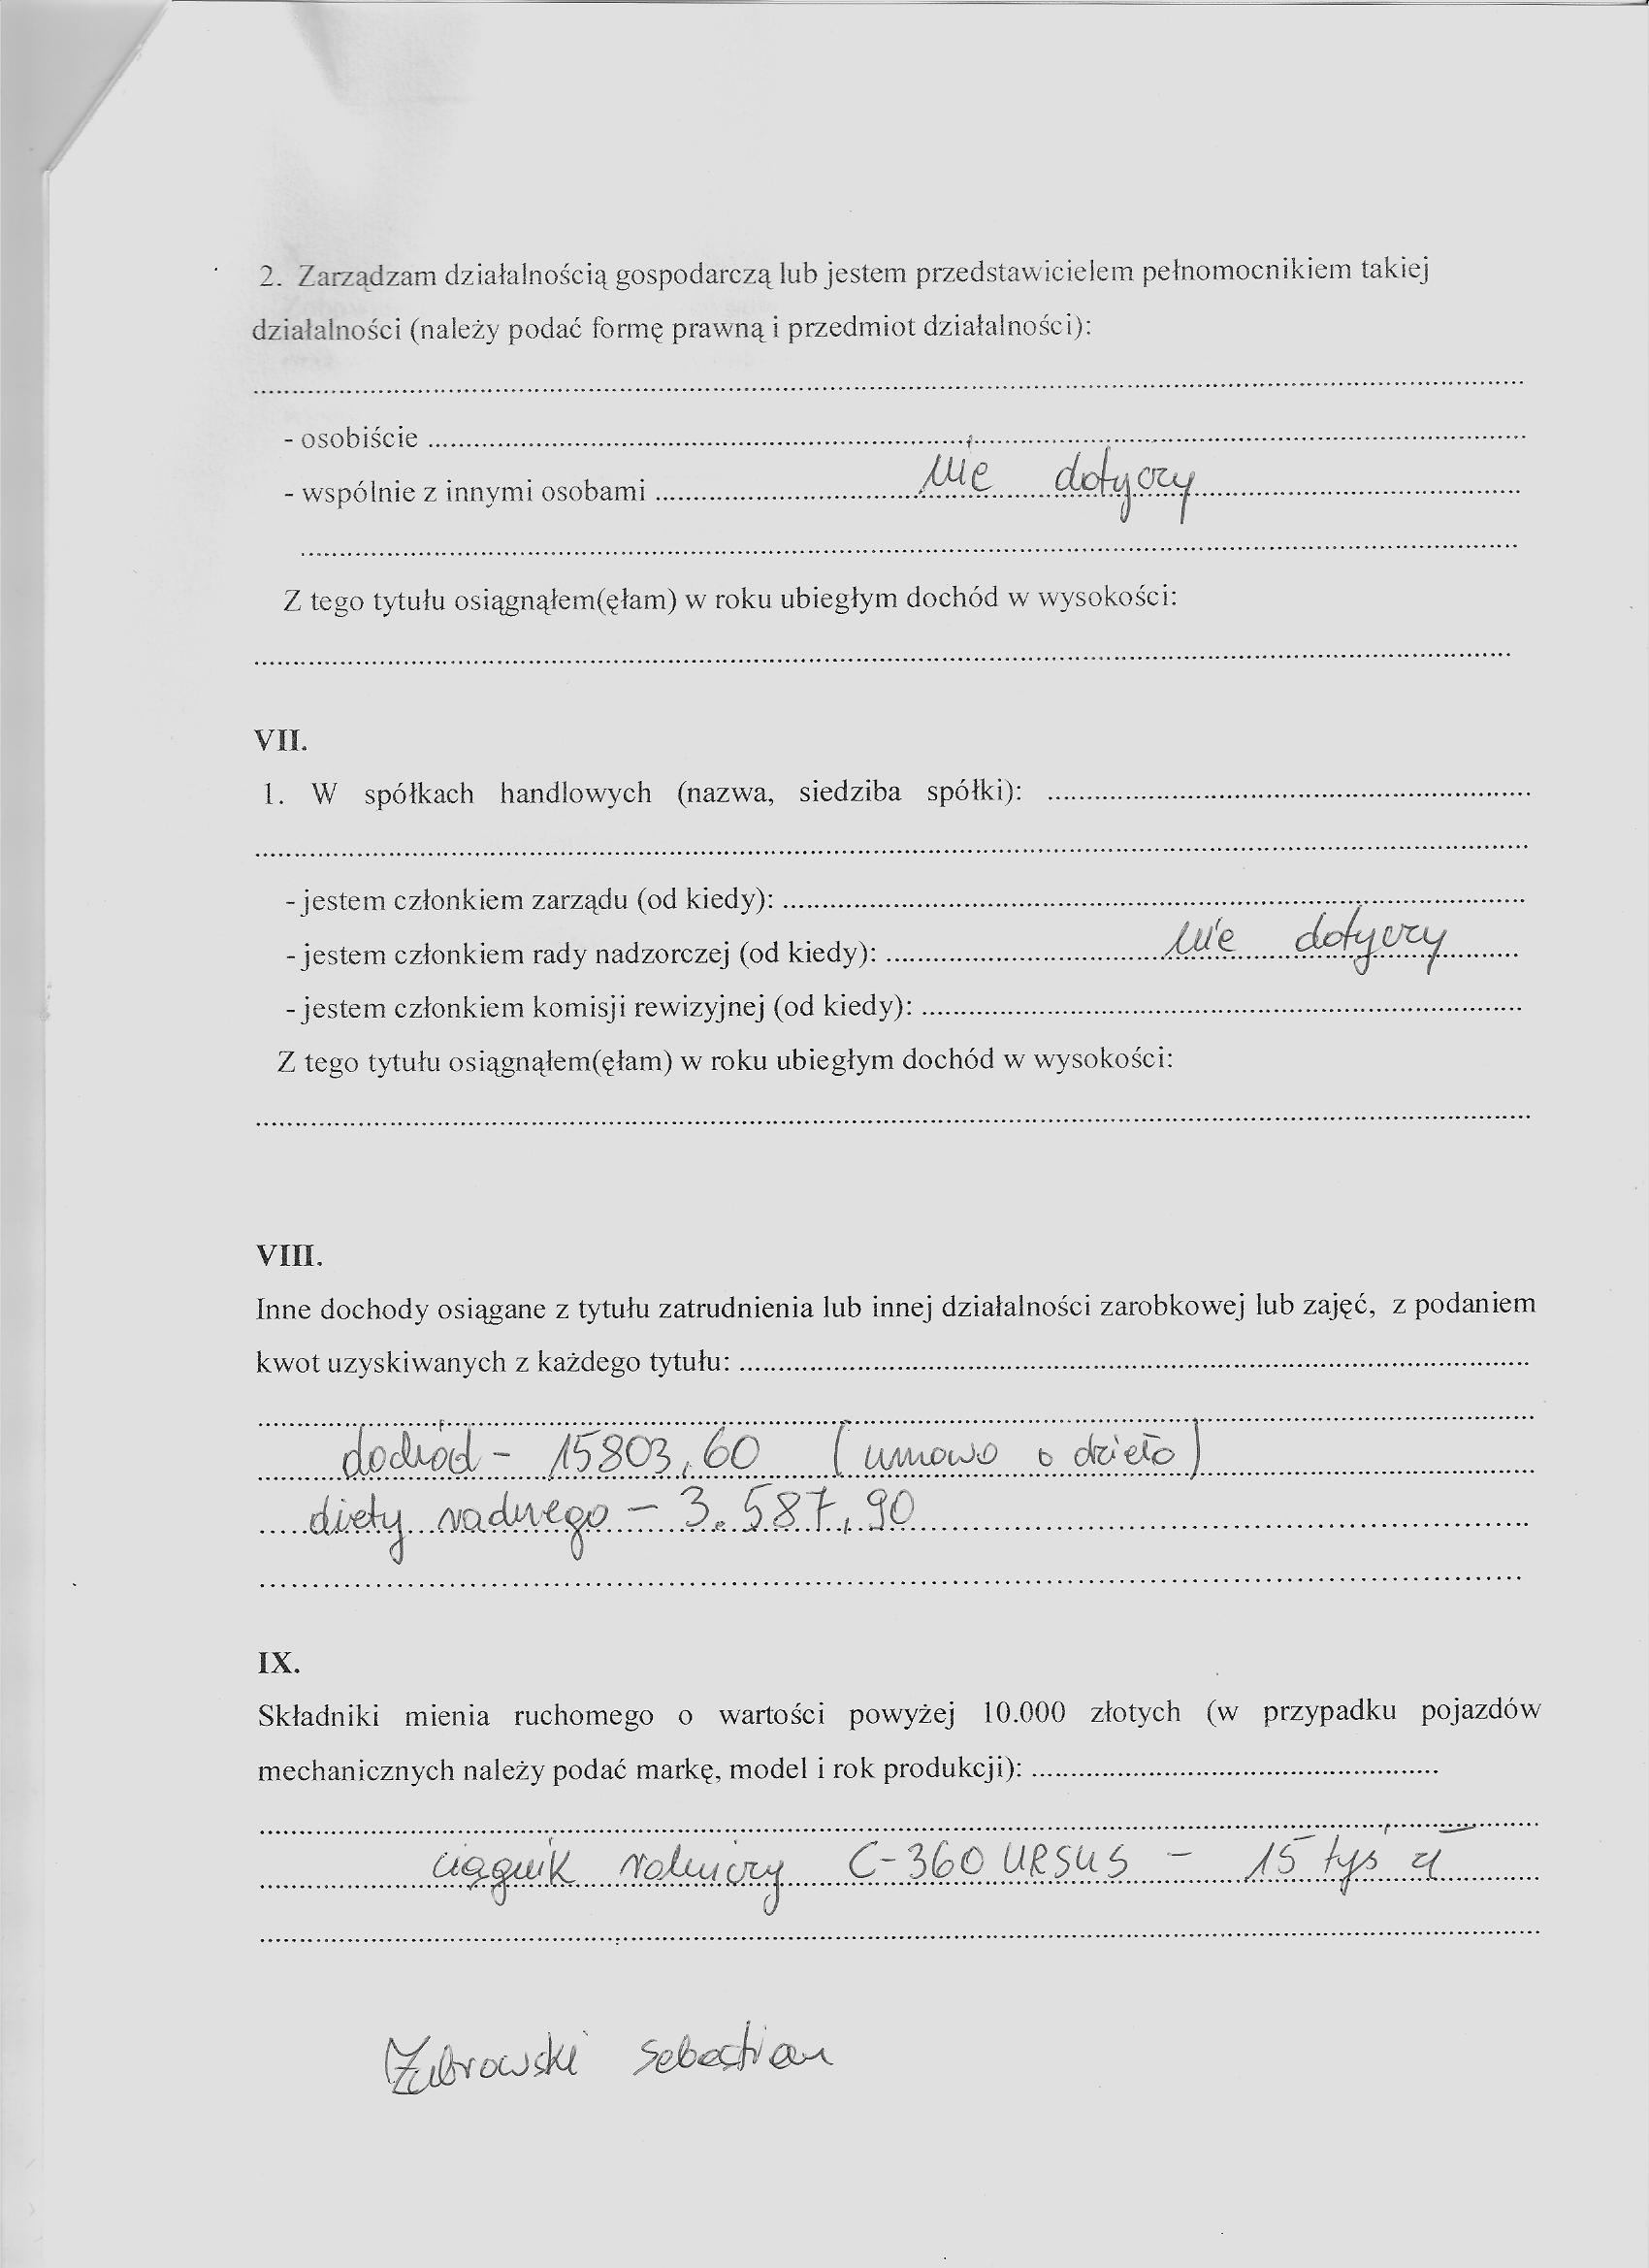 2. Zarządzam działalnością gospodarczą lub jestem przedstawicielem pełnomocnikiem takiej
działalności (należy podać formę prawną i przedmiot działalności):
- osobiście
- wspólnie z innymi osobami nie dotyczy
Z tego tytułu osiągnąłem(ęłam) w roku ubiegłym dochód w wysokości:
VII.
1. W spółkach handlowych (nazwa, siedziba spółki):
- jestem członkiem zarządu (od kiedy):
- jestem członkiem rady nadzorczej (od kiedy): nie dotyczy
- jestem członkiem komisji rewizyjnej (od kiedy):
Z tego tytułu osiągnąłem(ęłam) w roku ubiegłym dochód w wysokości:
VIII.
Inne dochody osiągane z tytułu zatrudnienia lub innej działalności zarobkowej lub zajęć, z podaniem
kwot uzyskiwanych z każdego tytułu:
dochód - 15803,60 (umowa o dzieło)
diety radnego - 3.587,90
IX.
Składniki mienia ruchomego o wartości powyżej 10.000 złotych (w przypadku pojazdów
mechanicznych należy podać markę, model i rok produkcji):
ciągnik rolniczy C-360 URSUS - 15 tys zł
Żubrowski Sebastian